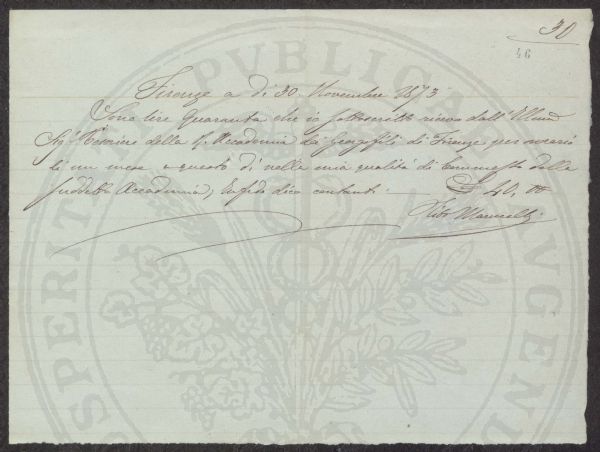 30
46
Firenze a dì 30 Novembre 1873
Sono lire Quaranta che io sottoscritto ricevo dall'Illmo
Sigr Cassiere della R. Accademia dei Georgofili di Firenze per
di un mese a questo dì nella mia qualità di Commesso della
suddetta Accademia, dico contanti £ 40, 00
PROSPERITATI PUBLICAE AUGENDAE